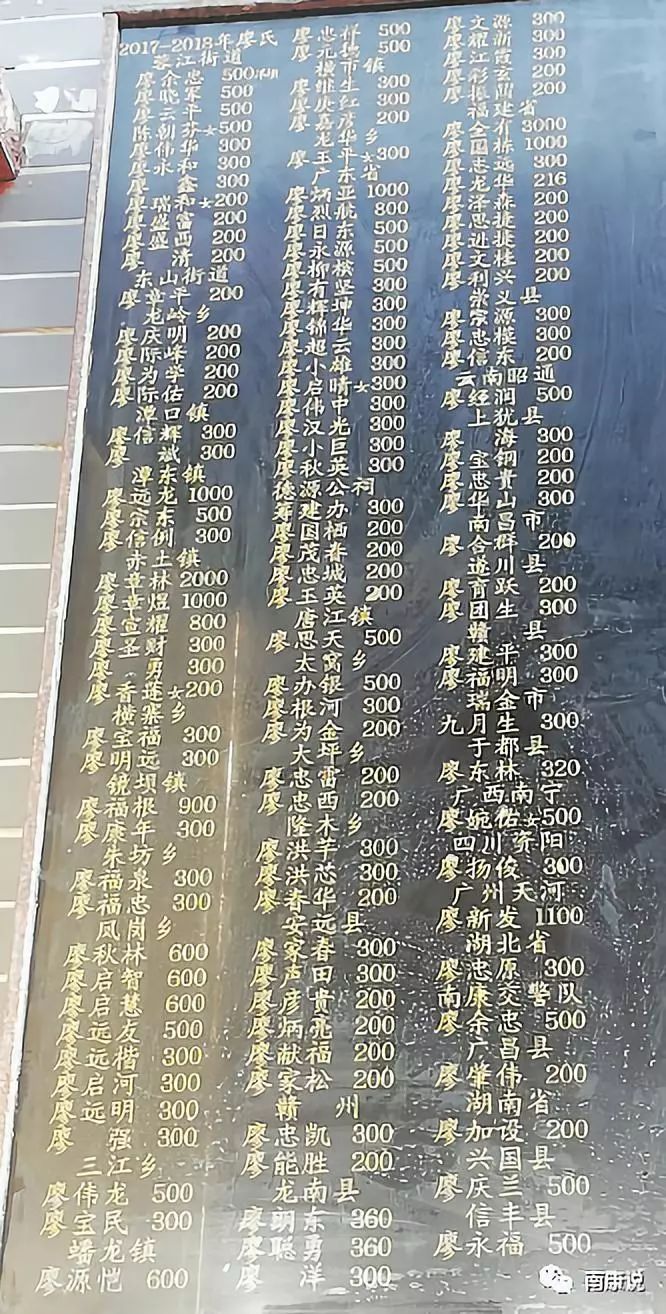 2017-2018年廖氏
蓉江街道
500
廖晓军 500
廖云平 500
陈朝芬女 500
廖伟华 300
廖永和 300
廖 鑫 300
廖瑞和女 200
廖盛富 200
廖盛西 200
廖 清 200
东山街道
廖章平 200
龙岭乡
廖庆明 200
廖际峰 200
廖为学 200
廖际佑 200
潭口镇
廖信辉 300
廖 斌 300
潭东镇
廖远龙 1000
廖宗东 500
廖信例 300
赤土镇
廖章林 2000
廖章煜 1000
廖宣耀 800
廖圣财 300
廖 勇 300
廖香莲女 200
横寨乡
廖宝福 300
廖明远 300
镜坝镇
廖福根 900
廖康年 300
朱坊乡
廖福泉 300
廖福忠 300
凤岗乡
廖秋林 600
廖启智 600
廖启慧 600
廖远友 500
廖远楷 300
廖启河 300
廖远明 300
廖 强 300
三江乡
廖伟龙 500
廖宝民 300
蟠龙镇
廖源恺 600
廖忠祥 500
廖元扬 500
横市镇
廖继生 300
廖庚红 300
廖嘉彦 200
龙华乡
廖玉平女 300
广东省
廖炳亚 1000
廖烈航 800
廖日东 500
廖永源 500
廖柳横 500
廖有坚 500
廖辉坤 300
廖锦华 300
廖超云 300
廖小雄 300
廖启晴女 300
廖伟中 300
廖汉光 300
廖小巨 300
廖秋英 300
德源公祠
廖寿建办 300
廖国栖 200
廖茂春 200
廖忠城 200
廖玉英 200
唐江镇
廖思天 500
太窝乡
廖办银 500
廖根河 300
廖为金 200
大坪乡
廖忠雷 200
廖忠西 200
隆木乡
廖洪羊 300
廖洪芯 300
廖春华 200
安远县
廖家春 300
廖声田 300
廖彦贵 200
廖炳亮 200
廖献福 200
廖家松 200
赣州
廖忠凯 300
廖能胜 200
龙南县
廖朗东 360
廖聪勇 360
廖 洋 300
廖文源 300
廖耀新 300
廖江霞 300
廖彩玄 200
廖振西 200
福建省
廖全有 3000
廖国栋 1000
廖忠远 300
廖龙华 216
廖泽森 200
廖思捷 200
廖进挺 200
廖文桂 200
廖利兴 200
崇义县
廖宗源 300
廖忠模 300
廖信东 200
云南昭通
廖经润 500
上犹县
廖 海 300
廖宝钢 200
廖忠贵 200
廖华山 300
南昌市
廖合群 200
遂川县
廖育跃 200
廖团生 300
赣县
廖建平 300
廖福明 300
瑞金市
九月生 300
于都县
廖东林 320
广西南宁
廖婉佑女 500
四川资阳
廖扬俊 300
广州天河
廖新发 1100
湖北省
廖忠原 300
南康交警队
廖余忠 500
广昌县
廖肇伟 200
湖南省
廖加设 200
兴国县
廖庆兰 500
信丰县
廖永福 500
南康说